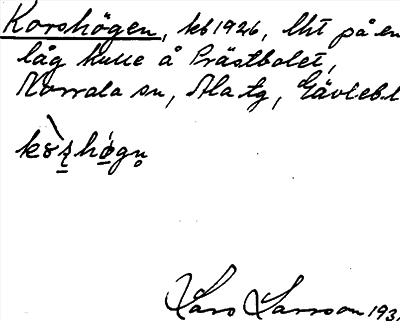 Korshögen, kbt 1926, lht på en
låg kulle å Prästbolet,
Norrala sn, Ala tg, Gävlebl
Lars Larsson 193